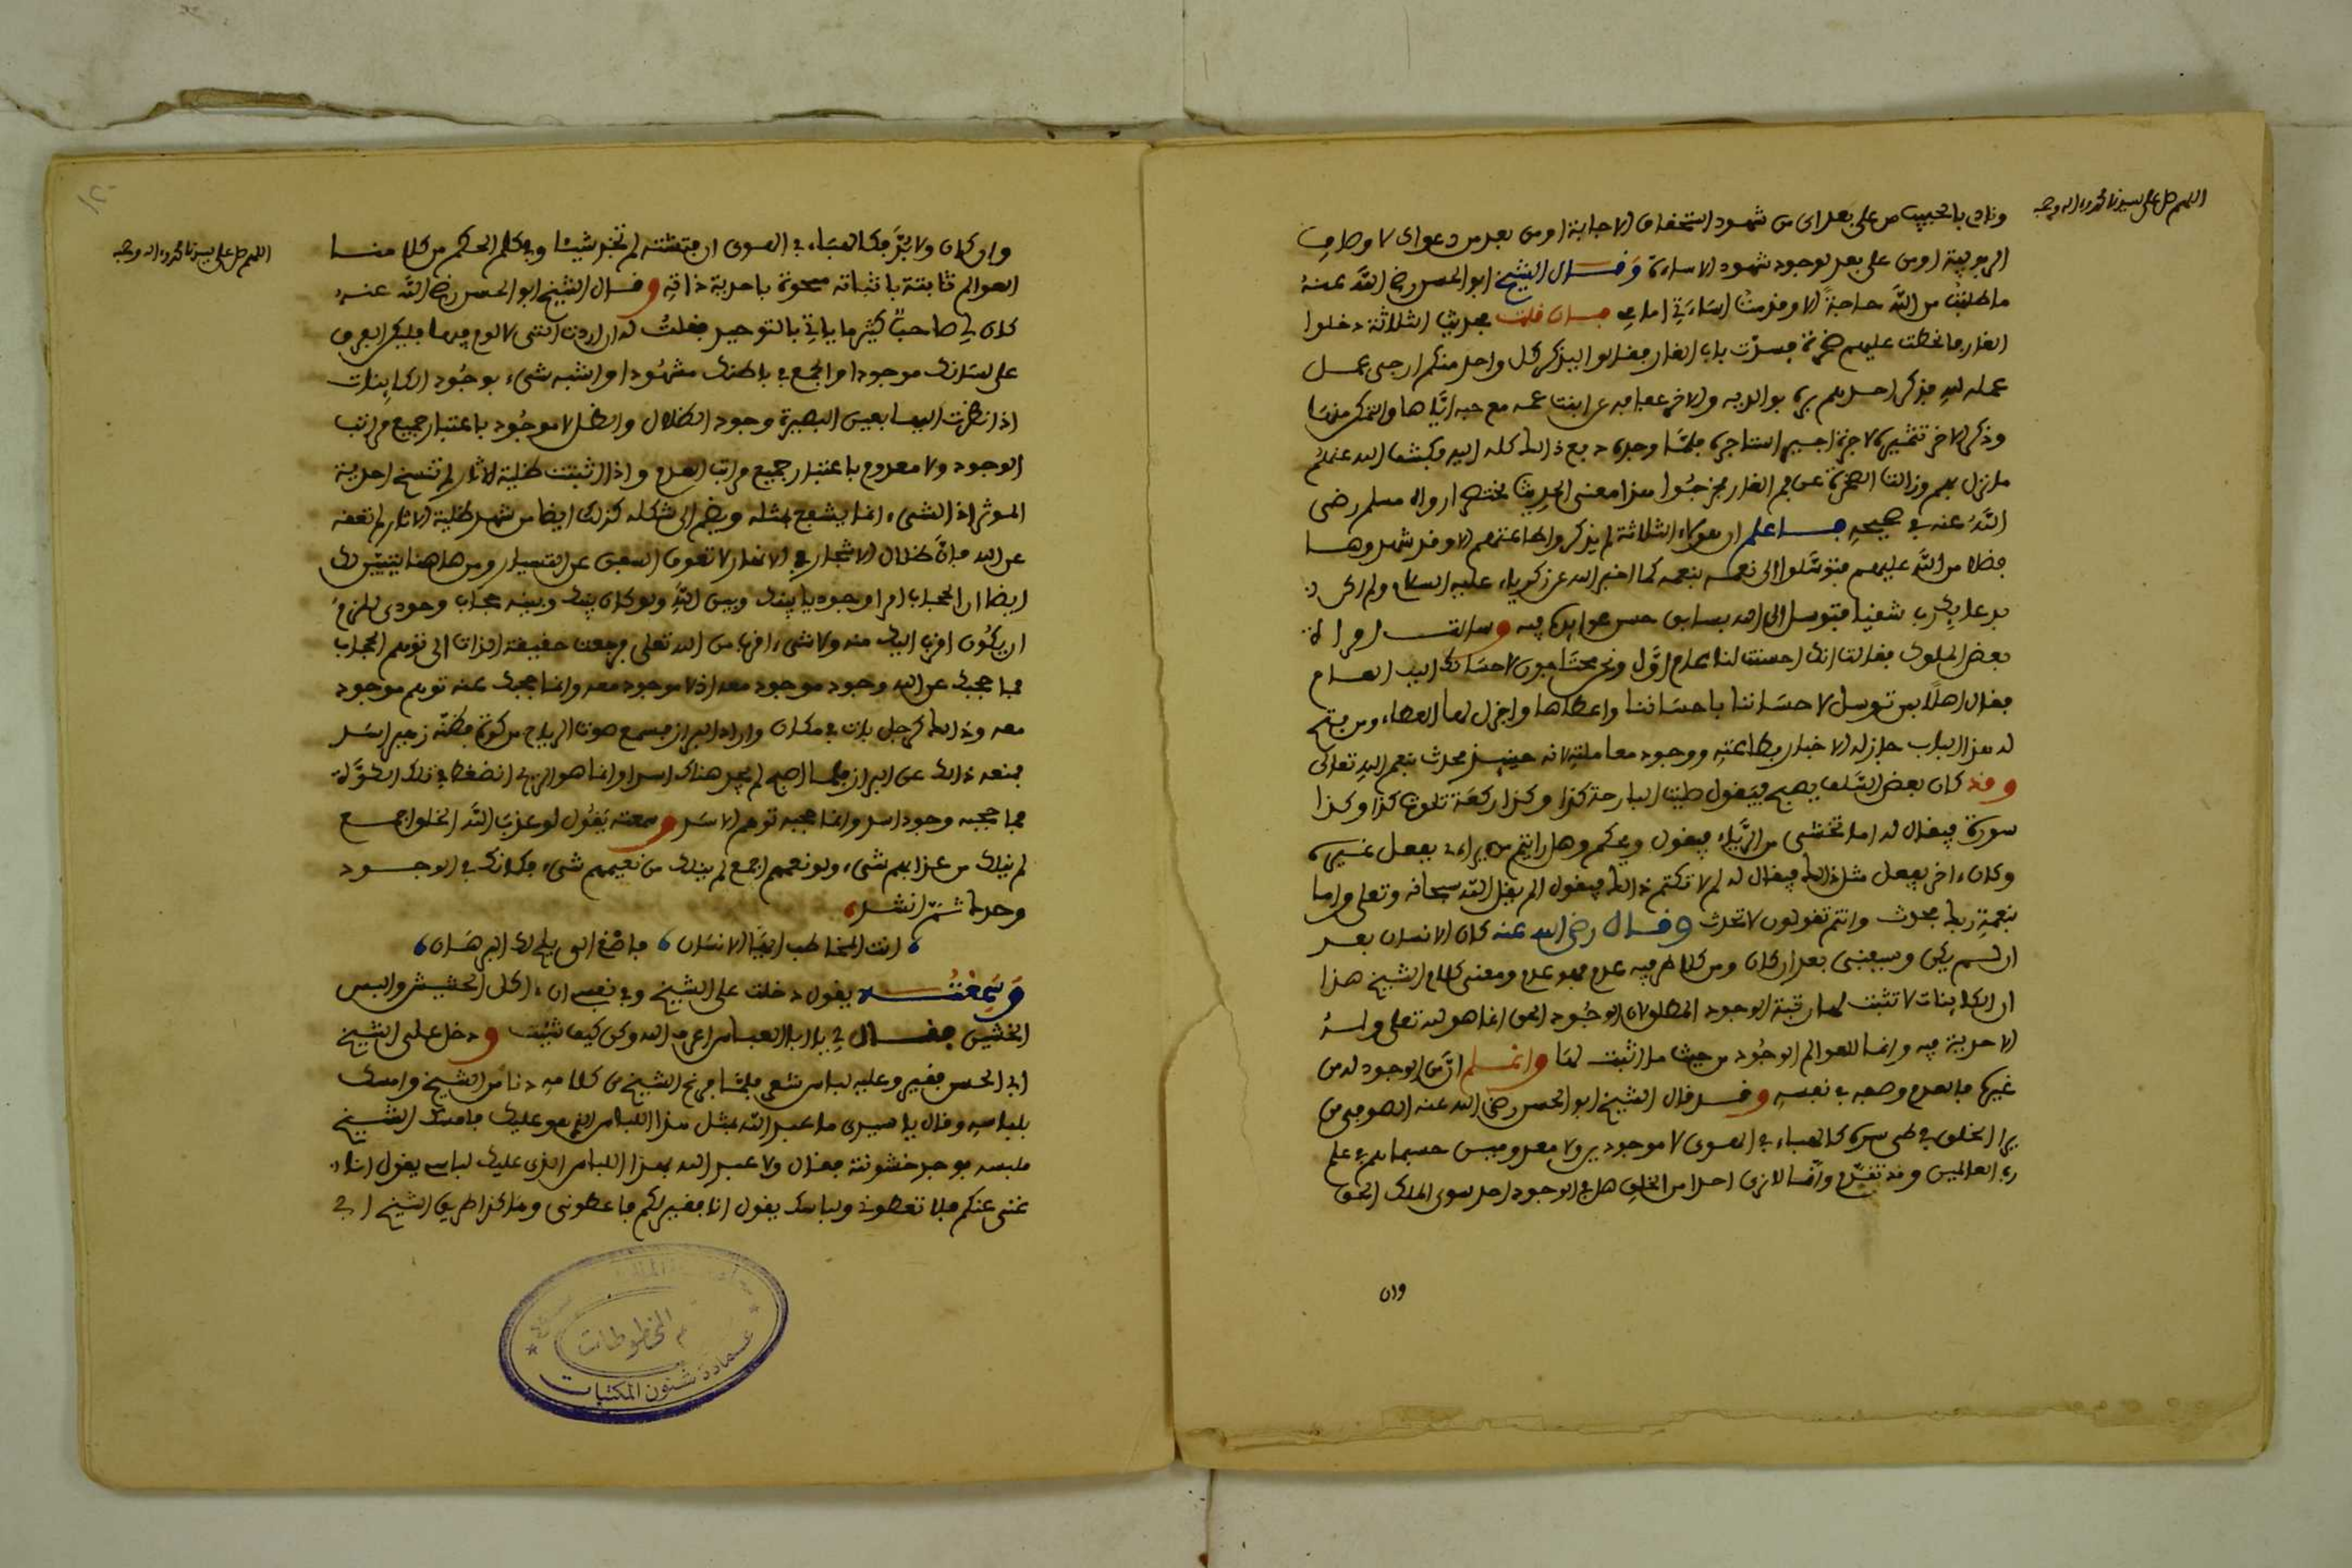 اللهم صل على سيدنا محمد وءاله وصحبه
ونادى بالحبيب من على بعد اى من شهود استحقاق الاجابة او من بعد من دعواى لاوصاف
الربوبية او من على بعد لوجود شهود الاساءة وقال الشيخ ابو الحسن رضى الله عنه
ما طلبت من الله حاجة الا وقدمت اساءتى امامى فان قلت حديث الثلاثة دخلوا
الغار فانحطت عليهم صخرة فسدت باب الغار فقالوا ليذكر كل واحد منكم ارجى عمل
عمله لله فذكر احدهم بره بوالديه والاخر عفافه عن ابنت عمه مع حبه اياها والتمكن منها
وذكر الاخر تثميره لاجرة اجير استاجره فلما وجده دفع ذالك كله اليه فكشف الله عنهم
ما نزل بهم وزالت الصخرة عن فم الغار فخرجوا هذا معنى الحديث مختصرا رواه مسلم رضى
الله عنه في صحيحه فاعلم ان هؤلاء الثلاثة لم يذكروا طاعتهم الا وقد شهدوها
فضلا من الله عليهم فتوسلوا الى نعمه بنعمه كما اخبر الله عن زكرياء عليه السلام ولم اكن
بدعائك رب شقيا فتوسل الى الله بسابق حسن عوايده فيه وسالت امراة
بعض الملوك فقالت انك احسنت لنا عام اول ونحن محتاجون لاحسانك اليه العام
فقال اهلا بمن توسل لاحساننا باحساننا واعطاها واجزل لها العطاء ومن فتح
له هذا الباب جاز له الاخبار بطاعته ووجود معاملته لانه حينيذ محدث بنعم الله تعالى
وقد كان بعض السلف يصبح فيقول صليت البارحة كذا وكذا ركعة تلوت كذا وكذا
سورة فيقال له اما تخشى من الرياء فيقول ويحكم وهل رايتم من يراءى بفعل غيره
وكان ءاخر يفعل مثل ذالك فيقال له لم لا تكتم ذالك فيقول الم يقل الله سبحانه وتعلى واما
بنعمة ربك فحدث وانتم تقولون لا تحدث وقال رضى الله عنه كان الانسان بعد
ان لم يكن وسيفنى بعد ان كان ومن كلا طرفيه عدم فهو عدم ومعنى كلام الشيخ هذا
ان الكاينات لا تثبت لها رتبة الوجود المطلق لان الوجود الحق انما هو لله تعلى وله
الاحدية فيه وانما للعوالم الوجود من حيث ما اثبت لها واعلم ان من الوجود له من
غيره فالعدم وصفه في نفسه وقد قال الشيخ ابو الحسن رضى الله عنه الصوفى من
يرى الخلق في طى سره كالهباء في الهوى لا موجودين ولا معدومين حسبما هم في علم
رب العالمين وقد تقدم وانا لا نرى احدا من الخلق هل في الوجود احد سوى الملك الحق
وان
اللهم صل على سيدنا محمد وءاله وصحبه
وان كان ولا بد فكالهباء في الهوى ان فتشته لم تجد شيئا وفي كلم الحكم من كلامنا
العوالم ثابتة باثباته ممحوة باحدية ذاته وقال الشيخ ابو الحسن رضى الله عنه
كان لي صاحب كثير ما ياتي بالتوحيد فقلت له ان اردت التى لا لوم فيها فليكن الفرق
على لسانك موجودا والجمع في باطنك مشهودا واشبه شىء بوجود الكاينات
اذا نظرت اليها بعين البصيرة وجود الظلال والظل لا موجود باعتبار جميع مراتب
الوجود ولا معدوم باعتبار جميع مراتب العدم واذا ثبتت ظلية الاثار لم تنسخ احدية
الموثر اذ الشىء انما يشفع بمثله ويضم الى شكله كذلك ايضا من شهد ظلية الاثار لم تعقه
عن الله فان ظلال الاشجار في الانهار لا تعوق السفن عن التسيار ومن هاهنا يتبين لك
ايضا ان الحجاب امرا وجوديا بينك وبين الله ولو كان بينك وبينه حجاب وجودى للزم
ان يكون اقرب اليك منه ولا شىء اقرب من الله تعلى فرجعت حقيقة الذات الى توهم الحجاب
فما حجبك عن الله وجود موجود معه اذ لا موجود معه وانما حجبك عنه توهم موجود
معه وذالك كرجل بات في مكان واراد البراز فسمع صوت الرياح من كوة فظنه زءير اسد
فمنعه ذالك عن البراز فلما اصبح لم يجد هناك اسدا وانما هو الريح انضغط في تلك الكوة
فما حجبه وجود اسد وانما حجبه توهم الاسد وسمعته يقول لو عذب الله الخلق اجمع
لم ينلك من عذابهم شىء ولو نعمهم اجمع لم ينلك من نعيمهم شىء فكانك في الوجود
وحدك ثم انشد
انت المخاطب ايها الانسان فاصغ الى يلح لك البرهان
وسمعته يقول دخلت على الشيخ وفي نفسى ان ءاكل الخشين والبس
الخشين فقال لي يا ابا العباس اعرف الله وكن كيف شئت ودخل على الشيخ
ابى الحسن فقير وعليه لباس شعر فلما فرغ الشيخ من كلامه دنا من الشيخ وامسك
بلباسه وقال يا سيدى ما عبد الله بمثل هذا اللباس الذى هو عليك فامسك الشيخ
ملبسه فوجد خشونة فقال ولا عبد الله بهذا اللباس الذى عليك لباسى يقول انا
غنى عنكم فلا تعطونى ولباسك يقول انا فقير لكم فاعطونى وهاكذا طريق الشيخ ابى
قسم المخطوطات
عمادة شئون المكتبات